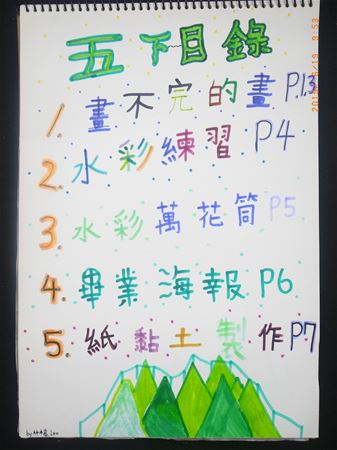 五下目錄
1. 畫不完的畫 P.1~3
2. 水彩練習 P4
3. 水彩萬花筒 P5
4. 畢業海報 P6
5. 紙黏土製作 P7